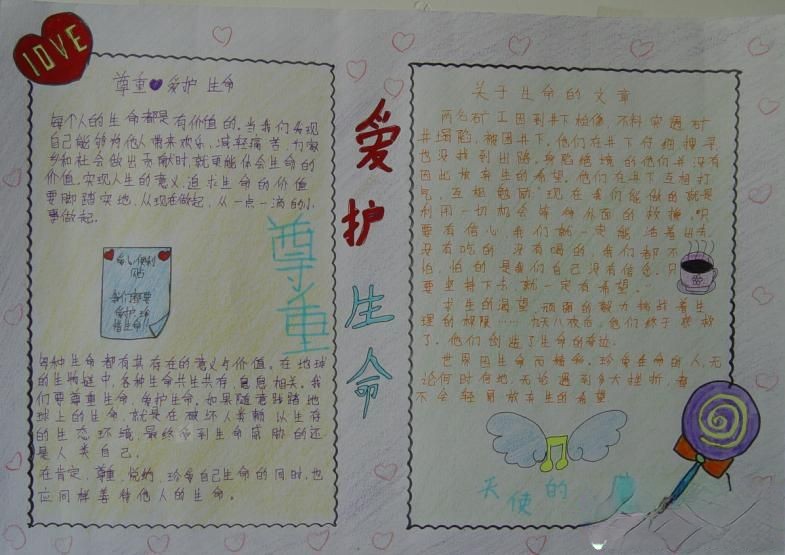 LOVE
尊重 爱护 生命
每个人的生命都是有价值的。当我们发现
自己能够为他人带来欢乐,减轻痛苦,为家
乡和社会做出贡献时,就更能体会生命的
价值,实现人生的意义,追求生命的价值
要脚踏实地,从现在做起,从一点一滴的小
事做起。
我们都要
爱护珍
惜生命!!
尊重
每种生命都有其存在的意义与价值。在地球
的生物链中,各种生命共生共存,息息相关。我
们要尊重生命,爱护生命。如果随意践踏地
球上的生命,就是在破坏人类赖以生存
的生态环境,最终受到生命威胁的还
是人类自己。
在肯定、尊重、悦纳、珍爱自己生命的同时,也
应同样善待他人的生命。
爱护生命
关于生命的文章
两名矿工因到井下检修,不料突遇矿
井塌陷,被困井下。他们在井下仔细搜寻,
也没找到出路。身陷绝境的他们并没有
因此放弃生的希望。他们在井下互相打
气,互相勉励:现在我们能做的就是
利用一切机会等待外面的救援。只
要有信心,我们就一定能活着出去,
没有吃的 没有喝的,我们都不
怕,怕的是我们自己没有信念。只
要坚持下去,就一定有希望。"
求生的渴望,顽强的毅力挑战着生
理的极限……九天八夜后,他们终于获救
了。他们创造了生命的奇迹。
世界因生命而精彩。珍爱生命的人,无
论何时何地,无论遇到多大挫折,都
不会轻易放弃生的希望
天使的